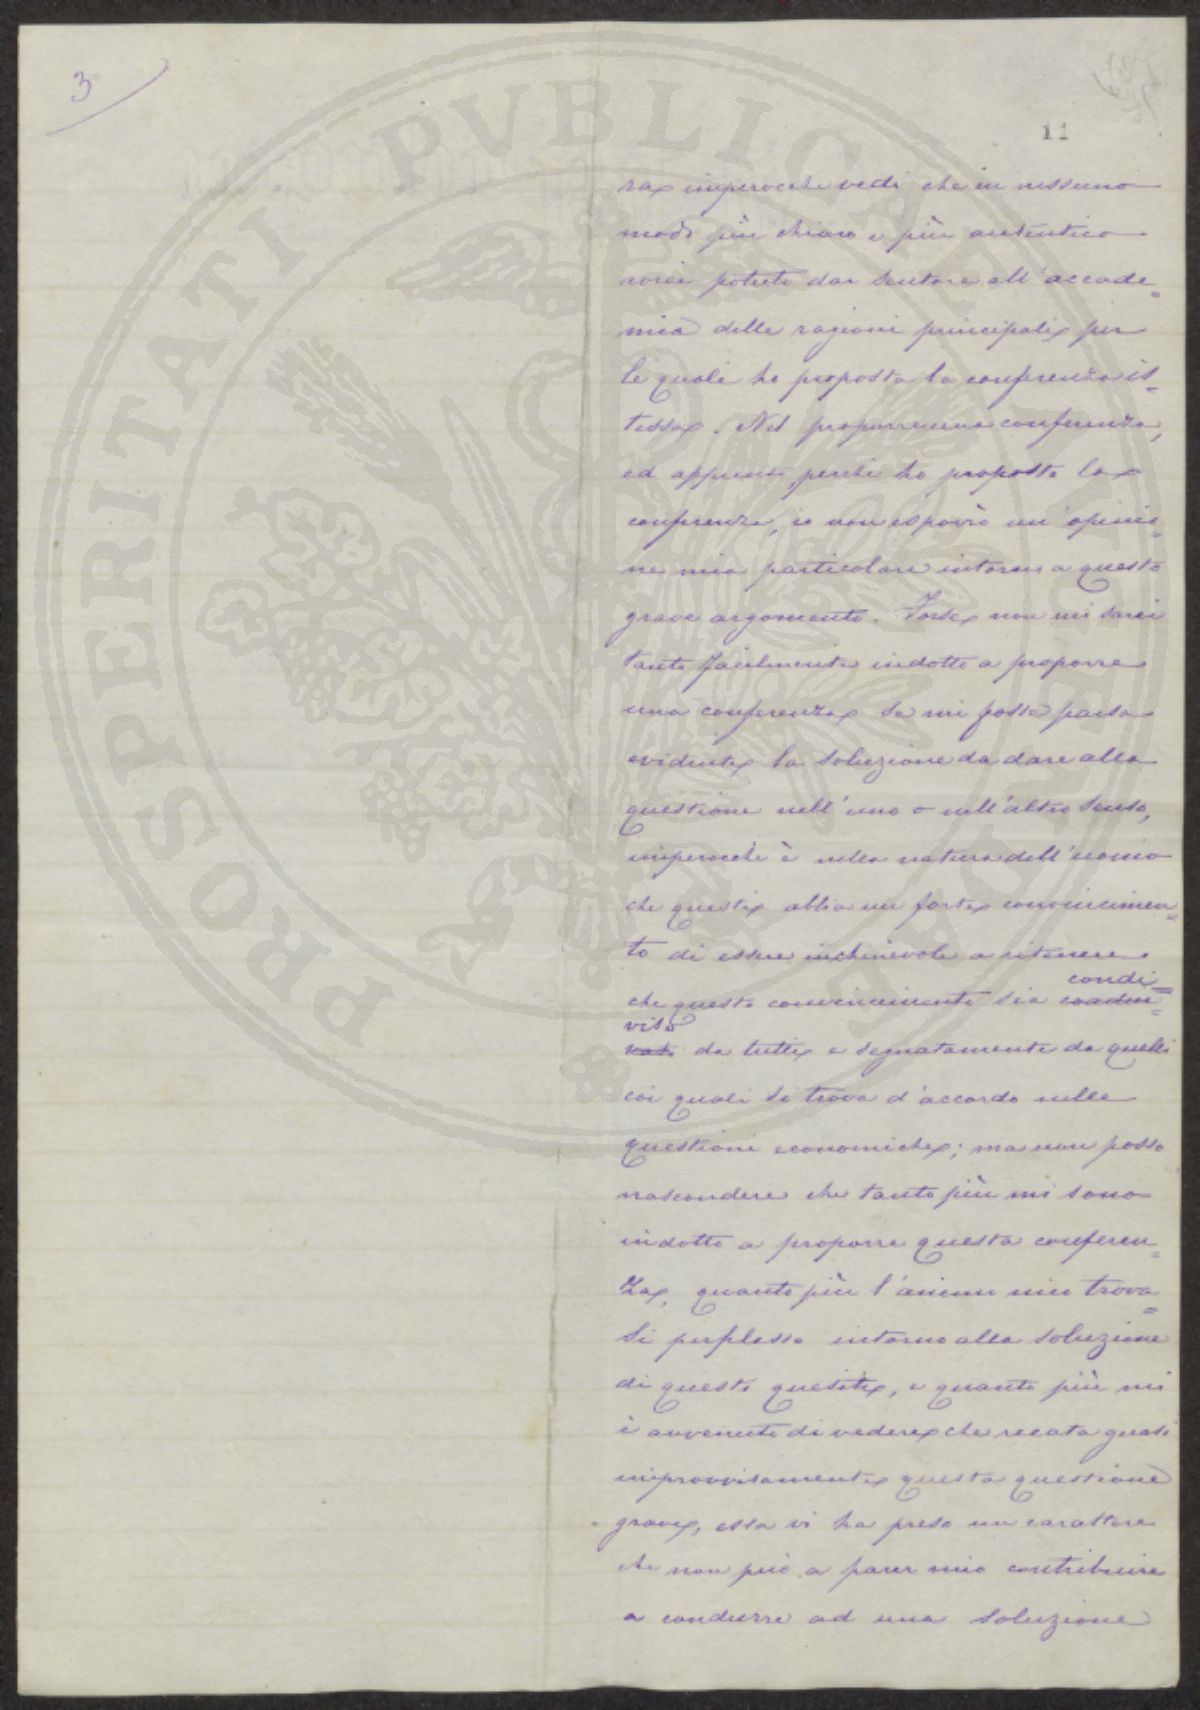 3
11
ra imperocché vedi che in nessuno
modo più chiaro e più autentico
avrei potuto dar sentore all'accade=
mia delle ragioni principali per
le quali ho proposta la conferenza is=
tessa. Nel proporre una conferenza,
ed appunto perché ho proposto la
conferenza, io non esporrò un'opinio=
ne mia particolare intorno a questo
grave argomento. Forse non mi sarei
tanto facilmente indotto a proporre
una conferenza se mi fosse parsa
evidente la soluzione da dare alla
questione nell'uno o nell'altro senso,
imperocché è nella natura dell'uomo
che questi abbia un forte convincimen=
to di essere inchinevole a ritenere
condi=
che questo convincimento sia
viso
da tutti e segnatamente da quelli
coi quali si trova d'accordo nelle
questioni economiche; ma non posso
nascondere che tanto più mi sono
indotto a proporre questa conferen=
za, quanto più l'animo mio trova=
si perplesso intorno alla soluzione
di questi quesiti, e quanto più mi
è avvenuto di vedere che recata quasi
improvvisamente questa questione
grave, essa vi ha preso un carattere
che non può a parer mio contribuire
a condurre ad una soluzione
PROSPERITATI PVBLICAE